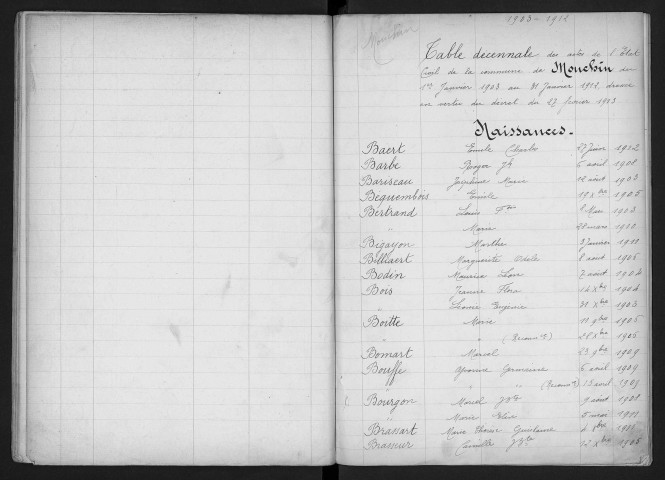 1903-1912
Mouchin
Table décennale des actes de l'Etat
Civil de la commune de Mouchin du
1er Janvier 1903 au 31 Janvier 1912, dressé
en vertu du décret du 27 février 1903
Naissances.
Baert Emile Charles 27 1902
Barbe Roger Jh 6 avril 1908
Bariseau Joséphine Marie 12 août 1903
Bequembois Emile 19 Xbre 1905
Bertrand Louis 1903
" Marie 28 mars 1910
Bigayon Marthe 8 Janvier 1911
Billiaert Marguerite Adèle 8 août 1906
Bodin Maurice 7 août 1904
Bois Jeanne Flora 16 Xbre 1904
Léonie Eugénie 31 Xbre 1903
Boitte Marie 10 9bre 1905
" (Reconn on) 28 Xbre 1905
Bomart Marcel 23 9bre 1909
Bouffe Yvonne Germaine 6 avril 1909
" " (Reconn on) 13 avril 1909
Bourgon Marcel Jh 9 août 1908
Marie 1911
Brassart Marie Thérèse Guislaine 6 1909
Brasseur Camille 12 Xbre 1908